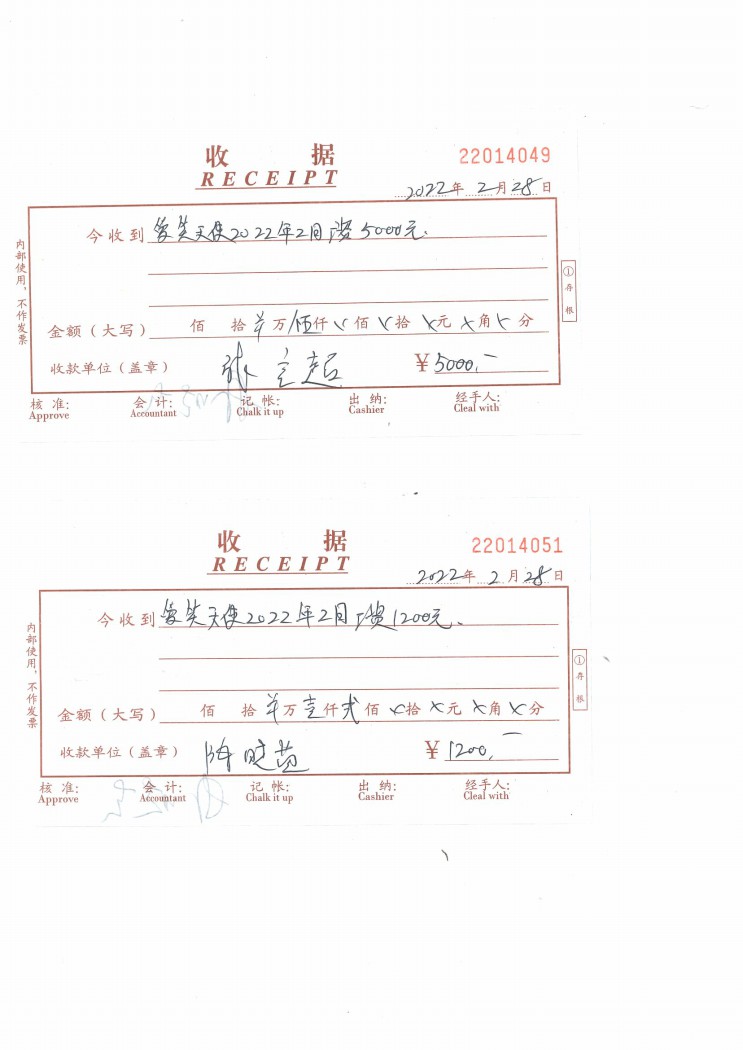 收 据
22014049
RECEIPT
2022年 2月28日
今收到 爱笑天使2022年2月 资5000元.
内部使用，不作发票
① 存根
金额（大写） 佰 拾 万 伍仟 佰 拾 元 角 分
收款单位（盖章） 张 ¥ 5000.—
核 准: 会 计: 记 帐: 出 纳: 经手人:
Approve Accountant Chalk it up Cashier Cleal with
收 据
22014051
RECEIPT
2022年 2月28日
今收到 爱笑天使2022年2月 资1200元.
内部使用，不作发票
① 存根
金额（大写） 佰 拾 万 壹仟 贰佰 拾 元 角 分
收款单位（盖章） 陈晓 ¥ 1200.—
核 准: 会 计: 记 帐: 出 纳: 经手人:
Approve Accountant Chalk it up Cashier Cleal with